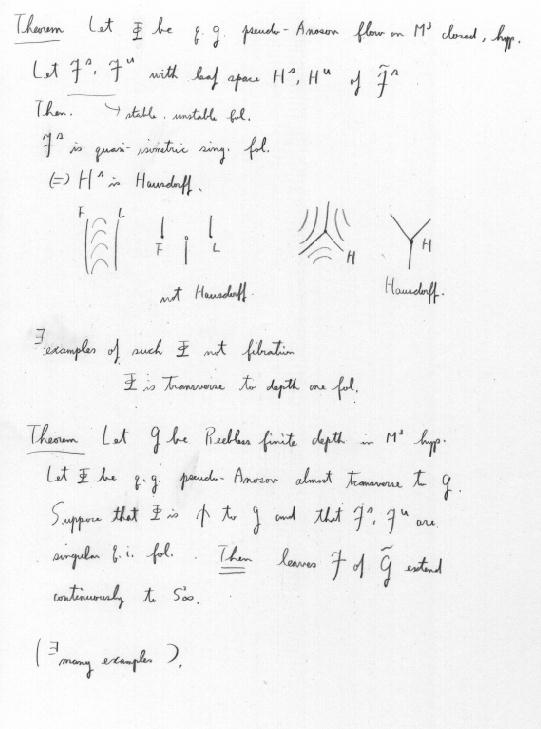 Theorem Let Φ be q. g. pseudo-Anosov flow on M³ closed, hyp.
Let ℱˢ, ℱᵘ with leaf space Hˢ, Hᵘ of ℱ̃ˢ
Then. ↳ stable, unstable fol.
ℱˢ is quasi-isometric sing. fol.
⟺ Hˢ is Hausdorff.
F L F L H H
not Hausdorff. Hausdorff.
∃ examples of such Φ not fibration
Φ is transverse to depth one fol.
Theorem Let G be Reebless finite depth in M³ hyp.
Let Φ be q. g. pseudo-Anosov almost transverse to G.
Suppose that Φ is ⋔ to G and that ℱˢ, ℱᵘ are
singular q. i. fol. Then leaves F of G̃ extend
continuously to S²∞.
(∃ many examples).